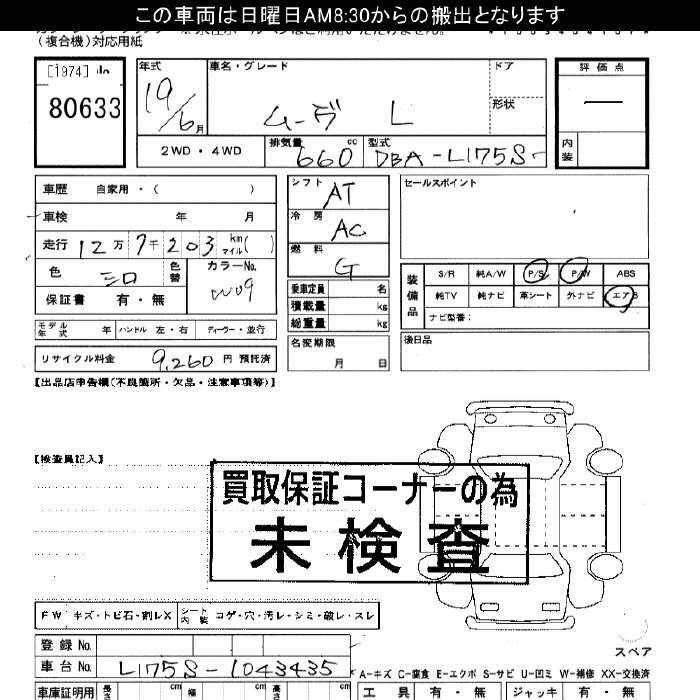 この車両は日曜日AM8:30からの搬出となります
(複合機)対応用紙
[1974]
80633
年式 19/6月
車名・グレード ムーヴ L
ドア
形状
評価点
―
内装
2WD・4WD
排気量 660 cc
型式 DBA-L175S-
車歴 自家用・( )
車検 年 月
走行 12万7千203 km マイル( )
色 シロ 色替
カラーNo. W09
保証書 有・無
モデル年式 年 ハンドル 左・右 ディーラー・並行
リサイクル料金 9,260 円 預託済
シフト AT
冷房 AC
燃料 G
乗車定員 名
積載量 kg
総重量 kg
名変期限
月 日
セールスポイント
装備品
S/R 純A/W P/S P/W ABS
純TV 純ナビ 革シート 外ナビ エアB
ナビ型番:
後日品
【出品店申告欄(不良箇所・欠品・注意事項等)】
【検査員記入】
買取保証コーナーの為
未検査
FW キズ・トビ石・割レX シート内装 コゲ・穴・汚レ・シミ・破レ・スレ
スペア
登録No.
車台No. L175S-1043435
A-キズ C-腐食 E-エクボ S-サビ U-凹ミ W-補修 XX-交換済
車庫証明用 長さ cm 幅 cm 高さ cm
工具 有・無 ジャッキ 有・無